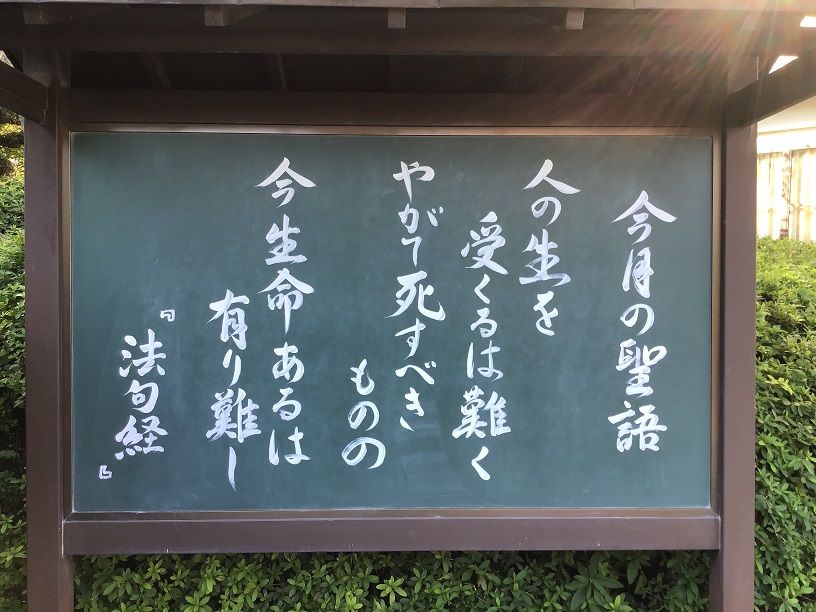 今月の聖語
人の生を
受くるは難く
やがて死すべき
ものの
今生命あるは
有り難し
『法句経』